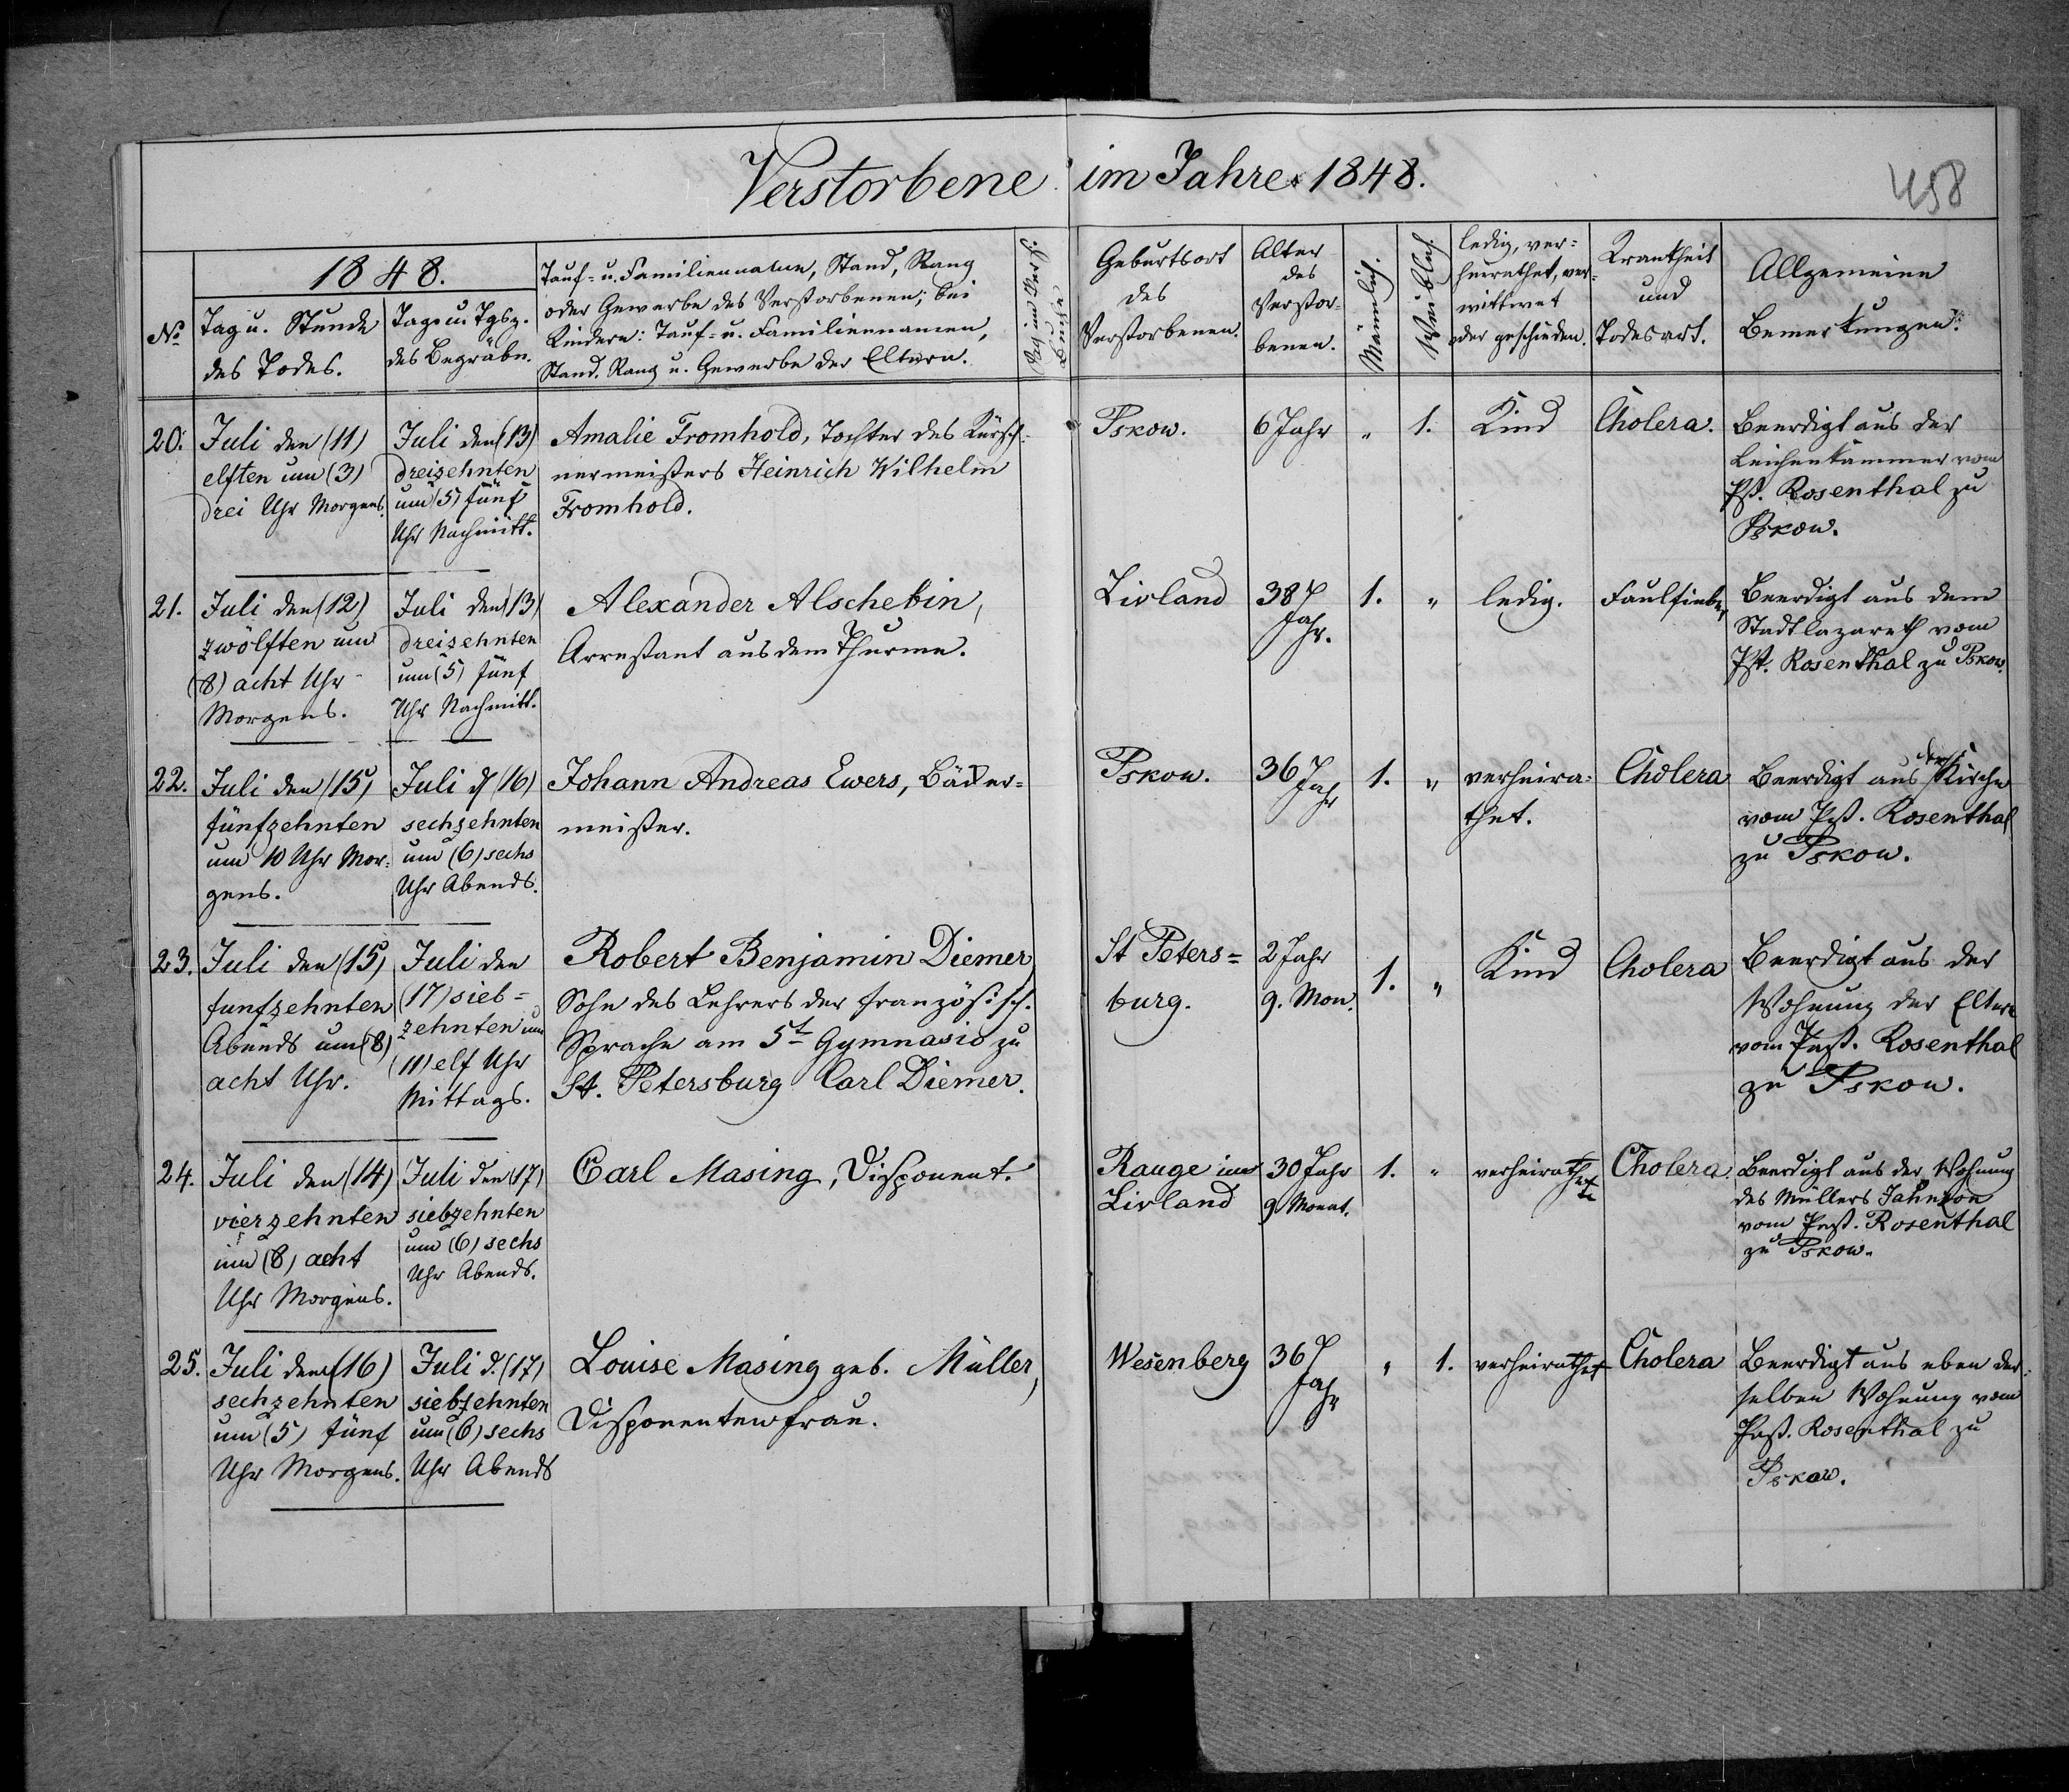 Verstorbene im Jahre 1848.
458
No
1848.
Tag u. Stunde
des Todes.
Tag u. Tgsz.
des Begräbn.
Tauf- u. Familienname, Stand, Rang
oder Gewerbe des Verstorbenen; bei
Kindern: Tauf- u. Familiennamen,
Stand. Rang u. Gewerbe der Eltern.
Geburtsort
des
Verstorbenen.
Alter
des
Verstor-
benen.
Männlich.
Weiblich.
ledig, ver-
heirathet, ver-
wittwet
oder geschieden.
Krankheit
und
Todesart.
Allgemeine
Bemerkungen.
20.
Juli den (11)
elften um (3)
drei Uhr Morgens.
Juli den (13)
dreizehnten
um (5) fünf
Uhr Nachmitt.
Amalie Fromhold, Tochter des Kürsch-
nermeisters Heinrich Wilhelm
Fromhold.
Pskow.
6 Jahr
"
1.
Kind
Cholera.
Beerdigt aus der
Leichenkammer vom
Pst. Rosenthal zu
Pskow.
21.
Juli den (12)
zwölften um
(8) acht Uhr
Morgens.
Juli den (13)
dreizehnten
um (5) fünf
Uhr Nachmitt.
Alexander Alschebin,
Arrestant aus dem Thurme.
Livland
38
Jahr.
1.
"
ledig.
Faulfieber
Beerdigt aus dem
Stadtlazareth vom
Pst. Rosenthal zu Pskow.
22.
Juli den (15)
fünfzehnten
um 10 Uhr Mor-
gens.
Juli d (16)
sechzehnten
um (6) sechs
Uhr Abends.
Johann Andreas Ewers, Bäcker-
meister.
Pskow.
36
Jahr
1.
"
verheira-
thet.
Cholera
Beerdigt aus der Kirche
vom Pst. Rosenthal
zu Pskow.
23.
Juli den (15)
funfzehnten
Abends um (8)
acht Uhr.
Juli den
(17) sieb-
zehnten um
(11) elf Uhr
Mittags.
Robert Benjamin Diemer,
Sohn des Lehrers der französisch.
Sprache am 5t Gymnasio zu
St. Petersburg Carl Diemer.
St Peters-
burg.
2 Jahr
9. Mon.
1.
"
Kind
Cholera
Beerdigt aus der
Wohnung der Eltern
vom Past. Rosenthal
zu Pskow.
24.
Juli den (14)
vierzehnten
um (8) acht
Uhr Morgens.
Juli den (17)
siebzehnten
um (6) sechs
Uhr Abends.
Carl Masing, Disponent.
Rauge im
Livland
30 Jahr
9 Monat.
1.
"
verheirathet
Cholera.
Beerdigt aus der Wohnung
des Müllers
vom Past. Rosenthal
zu Pskow.
25.
Juli den (16)
sechzehnten
um (5) fünf
Uhr Morgens.
Juli d. (17)
siebzehnten
um (6) sechs
Uhr Abends
Louise Masing geb. Müller,
Disponentenfrau.
Wesenberg
36
Jahr
"
1.
verheirathet
Cholera
Beerdigt aus eben der-
selben Wohnung vom
Past. Rosenthal zu
Pskow.